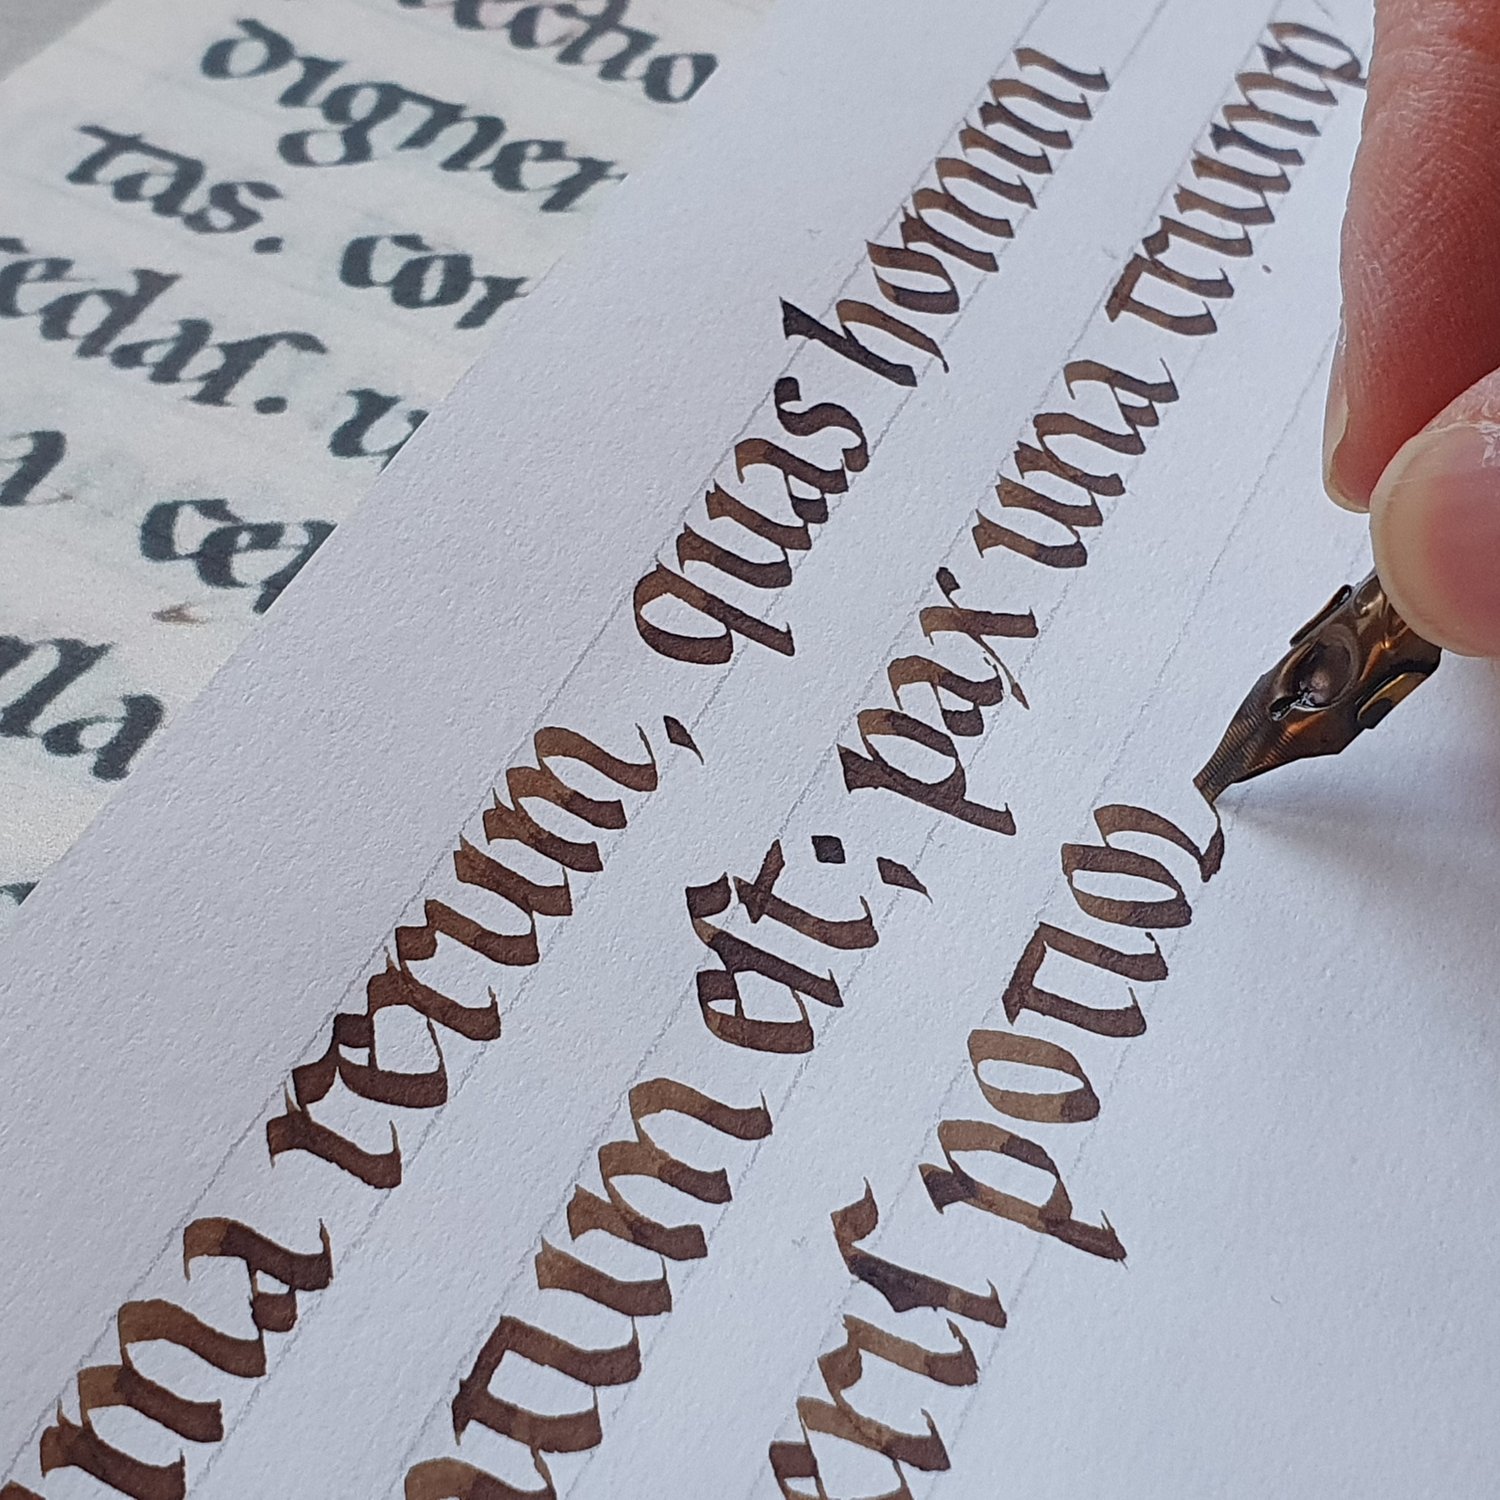 echo
digner
tas. cor
edaſ. u
a cer
lla
ima rerum, quas homini
atum eſt; pax una triump
eriſ potio